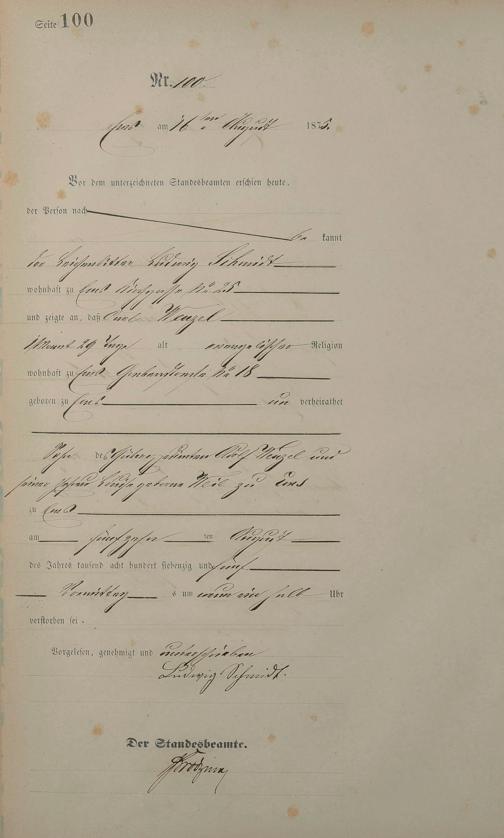 Seite 100
Nr. 100.
Ems am 16ten August 1875.
Vor dem unterzeichneten Standesbeamten erschien heute,
der Person nach
be kannt
der Leichenbitter Ludwig Schmidt
wohnhaft zu Ems Kirchgasse No 25
und zeigte an, daß Carl Wenzel
1 Monat 29 Tage alt evangelischer Religion
wohnhaft zu Ems Grabenstraße No 18
geboren zu Ems un verheirathet
Sohn des Adolf Wenzel und
seiner Ehefrau geborene Weil zu Ems
zu Ems
am fünfzehn ten August
des Jahres tausend acht hundert siebenzig und fünf
Vormittag s um neun ein halb Uhr
verstorben sei.
Vorgelesen, genehmigt und unterschrieben
Ludwig Schmidt.
Der Standesbeamte.